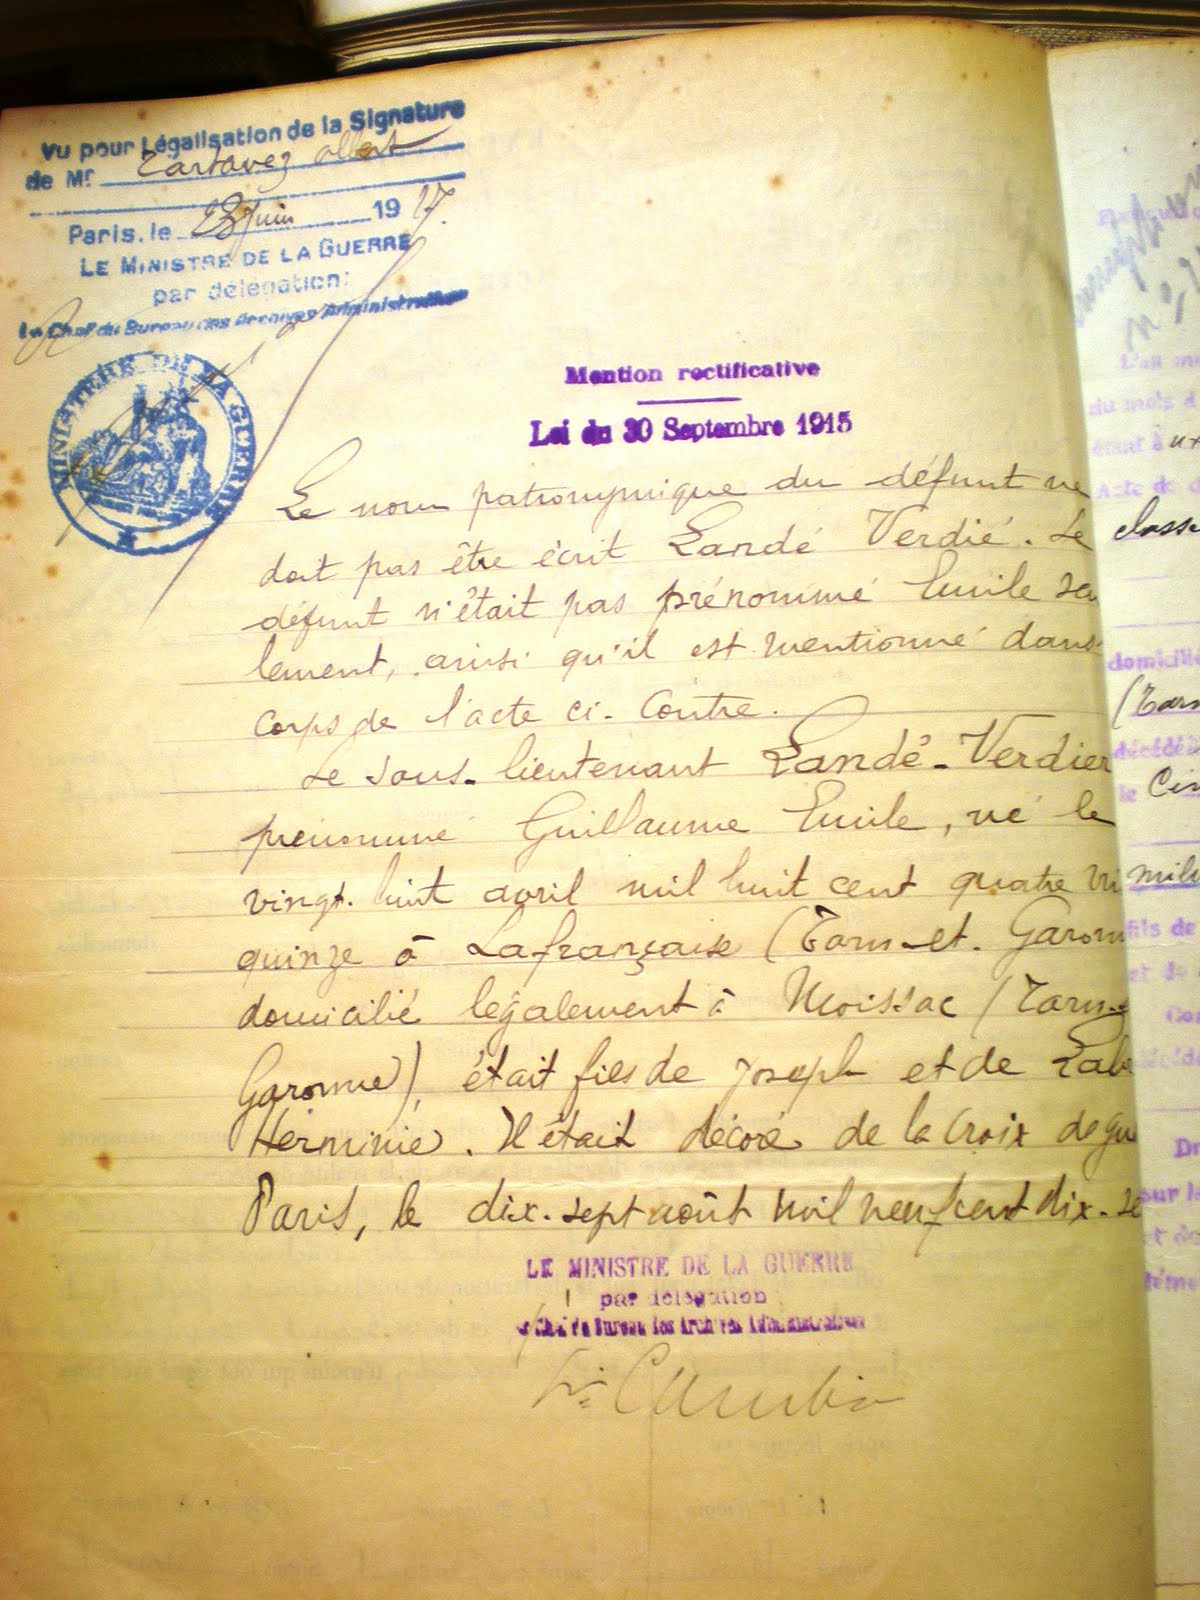 Vu pour Légalisation de la Signature
de Mr Tartavez Albert
Paris, le 23 Juin 1917.
LE MINISTRE DE LA GUERRE
par délégation:
Le Chef du Bureau des Archives Administratives
MINISTÈRE DE LA GUERRE
Mention rectificative
Loi du 30 Septembre 1915
Le nom patronymique du défunt ne
doit pas être écrit Landé Verdié. Le
défunt n'était pas prénommé Emile seu
lement, ainsi qu'il est mentionné dans
corps de l'acte ci-contre.
Le sous-lieutenant Landé-Verdier
prénommé Guillaume Emile, né le
vingt-huit avril mil huit cent quatre vi
quinze à Lafrançaise (Tarn-et-Garonn
domicilié légalement à Moissac (Tarn-
Garonne), était fils de Joseph et de Lab
Herminie. Il était décoré de la Croix de gu
Paris, le dix-sept août mil neuf cent dix-se
LE MINISTRE DE LA GUERRE
par délégation
Le Chef du Bureau des Archives Administratives
L'an m
du mois d
étant à
Acte de d
classe
domicilié
(Tarn
décédé
le Cin
mil
fils de
et de
Con
décédé
Dr
sur la
et de
téme